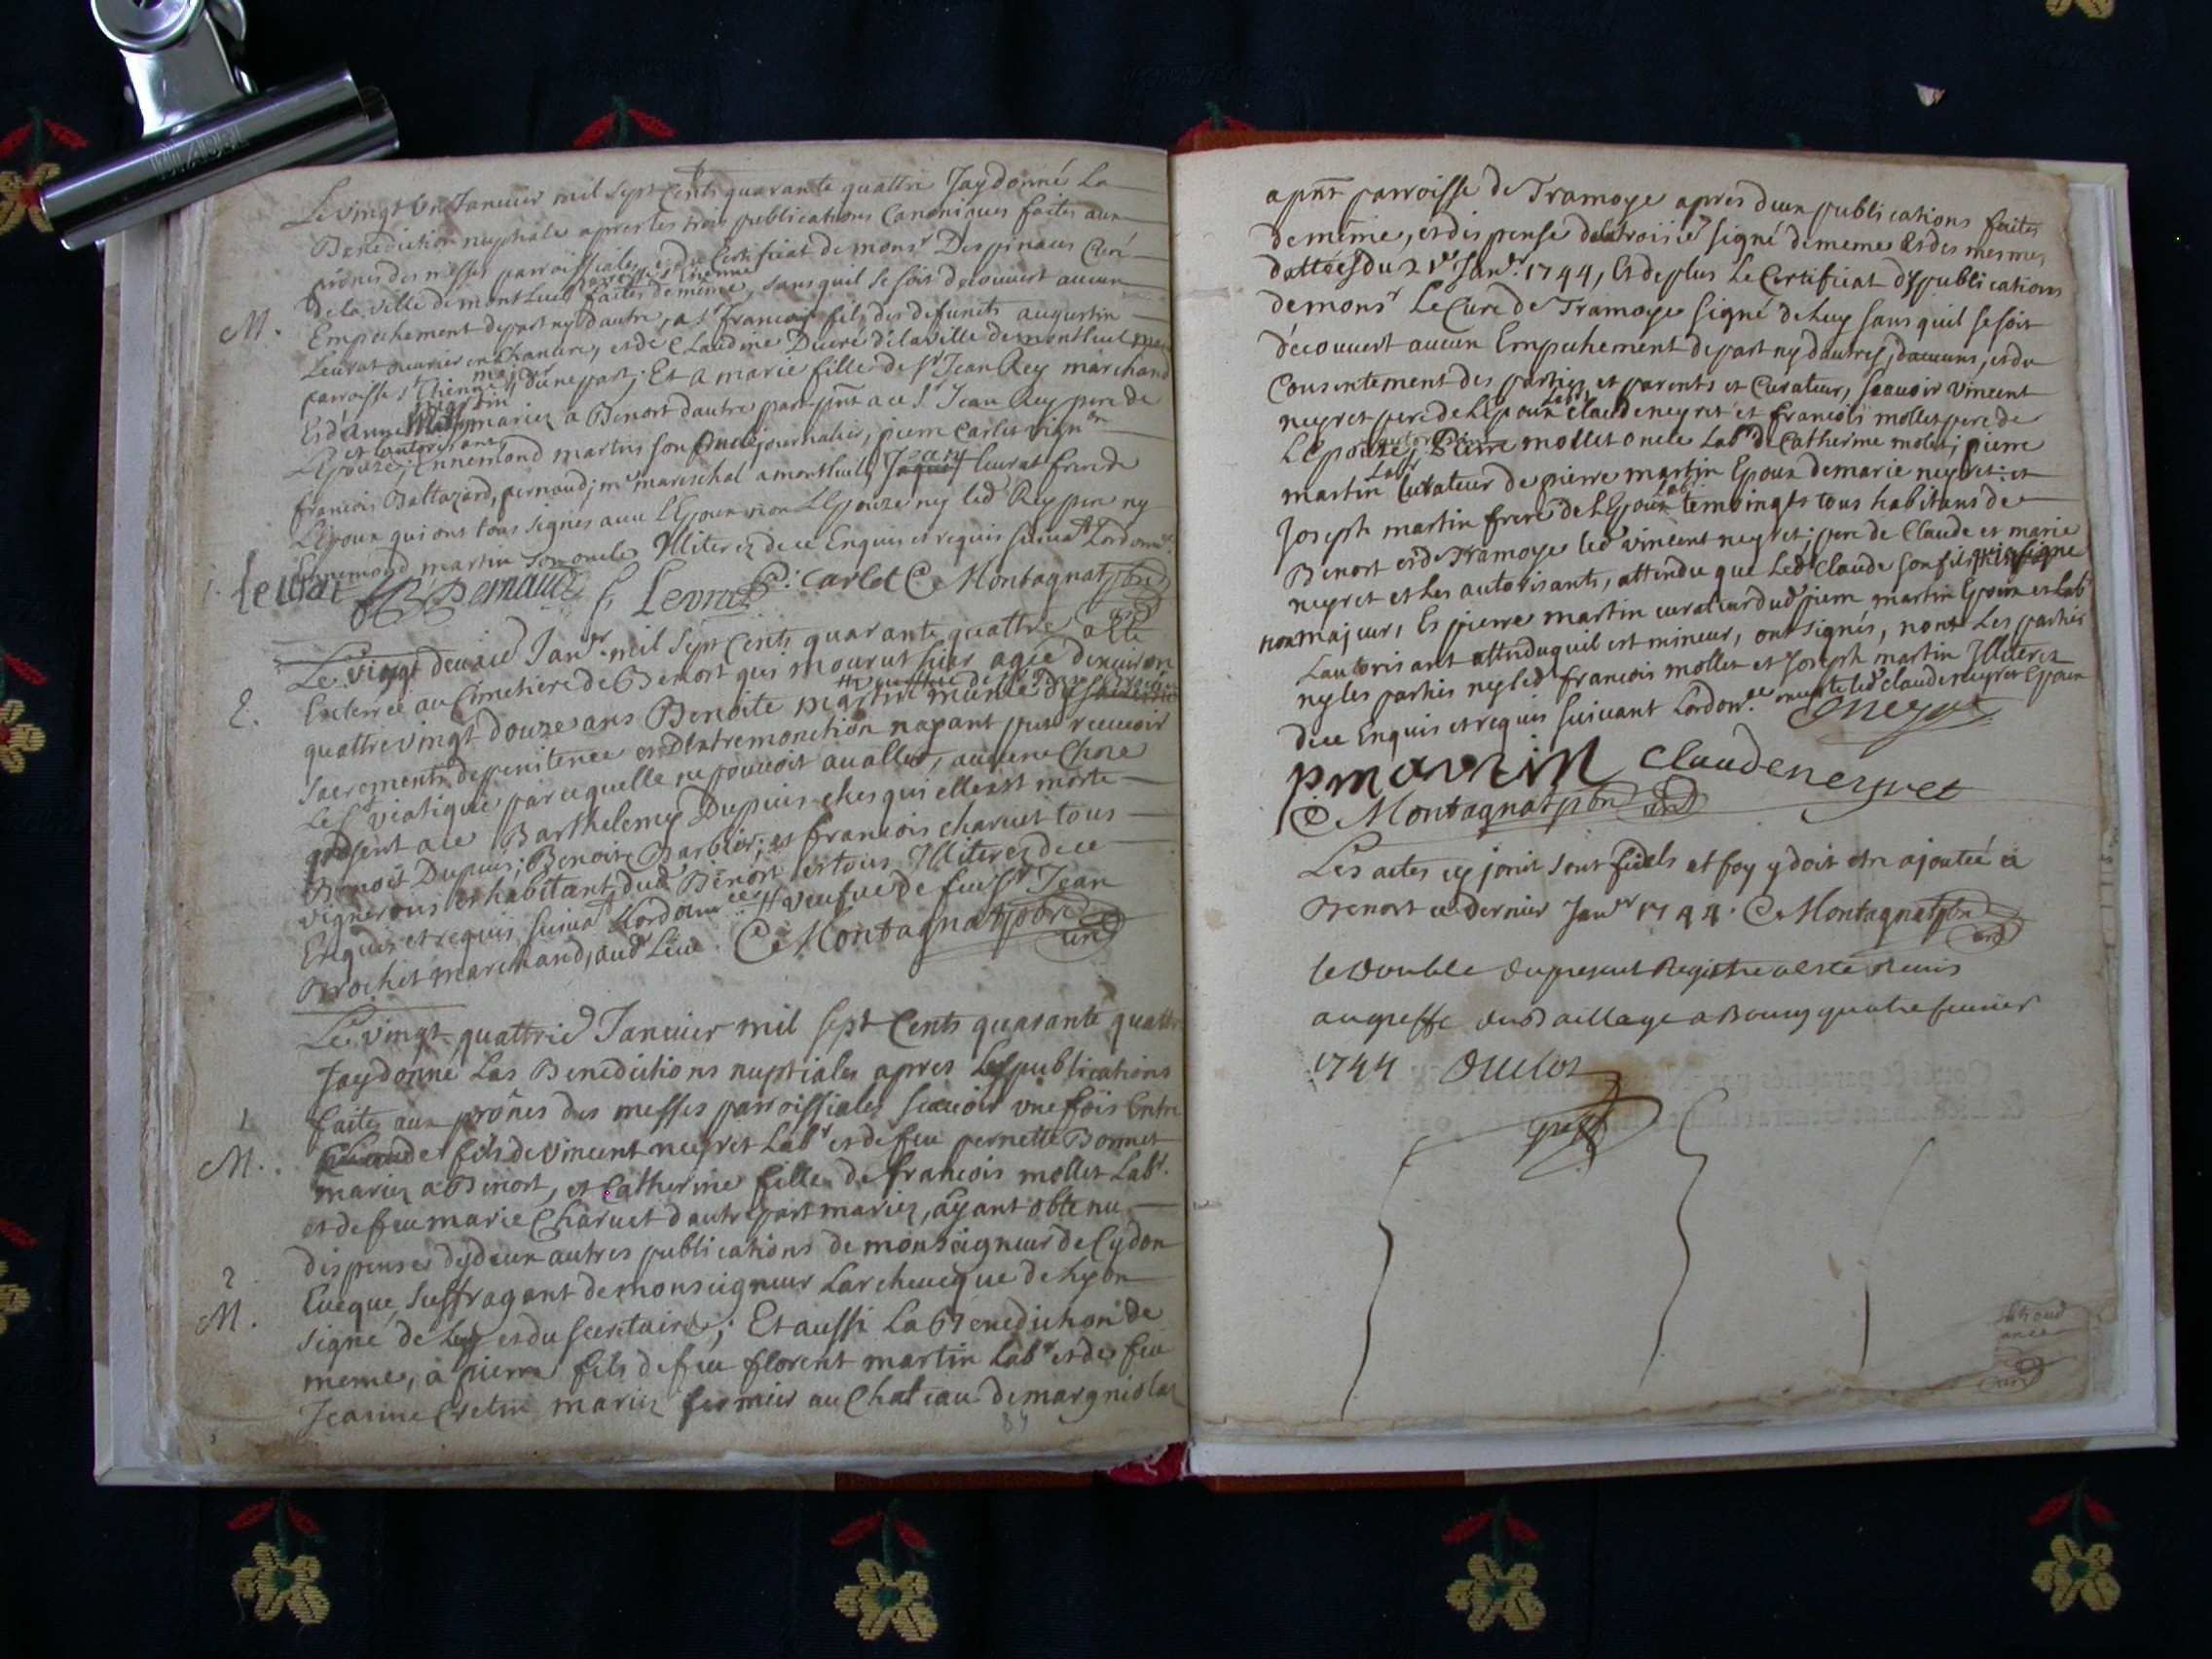 Le vingt un Januier mil sept Cents quarante quattre Jay donné La
Benediction nuptiale apres les trois publications Canoniques faites aux
prônes des messes parroissiales, et du Certificat de monsr Despinaux Curé
parroisse st Etienne
de la ville de montluel faites de même, sans quil se soit decouvert aucun
M. Empechement de part ny dautre, a sr francois fils des defunts augustin
Leurat ouurier en Chanure, et de Claudine Ducré de la ville de montluel
major
parroisse st Etienne, dune part; Et a marie fille de sr Jean Rey marchand
martin
Et d'anne mariez a Benort dautre part pnt a ce sr Jean Rey pere de
et autorisant
LEpouze; Ennemond martin son oncle journalier, pierre Carlet vignon
francois Baltazard, pernaud; me mareschal a montluel; Jean leurat frere de
LEpoux qui ont tous signes auec LEpoux non LEpouze ny led Rey pere ny
Ennemond martin son oncle Illiterez de ce Enquis et requis suiuat Lordonnce
leurat B Pernaud f Levrat P. Carlet C Montagnat pbre
curé
Le vingt deuxie Janer mil sept Cents quarante quattre a esté
Enterreé au Cimetiere de Benort qui mourut hier ageé denuiron
2. quattre vingt douze ans Benoite martin munie des
Sacrements de penitence et DExtremonction nayant peu receuoir
Le st viatique parcequelle ne pouuoit auallér, aucune Chose
présent a ce Barthelemy Dupuis ches qui elle est morte
Benoit Dupuis; Benoit Barbier; et francois charuet tous
vignerons et habitant dud Benort et tous Illiterez de ce
Enquis et requis suiuat Lordonnce # veufue de feu sr Jean
Brochet marchand, aud Lieu. C Montagnat pbre
curé
Le vingt quattrie Januier mil sept Cents quarante quattre
Jay donné Las Benedictions nuptiales apres Les publications
1 faites aux prônes des messes parroissiales scauoir vne fois Entre
M. Claude fils de vincent neyret Labr et de feu pernette Bonnet
mariez a Benort, et Catherine fille de francois mollet Labr.
et de feu marie Charuet dautre part mariez, ayant obtenu
dispense des deux autres publications de monseigneur de Cydon
2 Eueque suffragant de monseigneur Larcheueque de Lyon
M. signé de Luy et du secretaire; Et aussi La Benediction de
meme, a pierre fils de feu florent martin Labr et de feu
Jeanne Cretin mariez fermier au Chateau de margniolas
84
a pnt parroisse de Tramoye apres deux publications faites
de même, et dispense de la troisie signé de meme Et des mesmes
datteés du 21e Janr. 1744, Et de plus Le Certificat des publications
de monsr Le Curé de Tramoye signé de Luy sans quil se soit
découuert aucun Empechement de part ny dautres, daucuns, et du
Consentement des parties et parents et Curateur, scauoir vincent
neyret pere de LEpoux Claude neyret et francois mollet pere de
autorisant
LEpouze; Pierre mollet oncle Labr de Catherine molet; pierre
Labr
martin Curateur de pierre martin Epoux de marie neyret et
Labr
Joseph martin frere de LEpoux temoings tous habitans de
Benort et de Tramoye led vincent neyret; pere de Claude et marie
neyret et Les autorisants, attendu que Led Claude son fils
non majeur, Et pierre martin curateur dud pierre martin Epoux et Labr
Lautorisant attenduquil est mineur, ont signés, non Les parties
ny les parties ny led francois mollet et Joseph martin Illiterez
de ce Enquis et requis suiuant Lordonce led claude neyret Epoux
CNeyret
p martin Claude neyret
C Montagnat pbre curé
Les actes cy joint sont fidels et foy y doit etre ajouteé a
Benort ce dernier Janer 1744. C Montagnat pbre
curé
le double du present Registre a este Remis
au greffe du Baillage a Bourg quatre feurier
1744 Duclos
greff